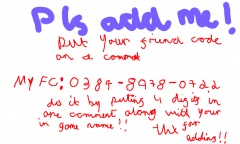 Pls add me!
Put your friend code
on a comment
My FC: 0384-8978-0722
do it by puting 4 digits in
one comment along with your
in game name!!
Thx for
adding!!